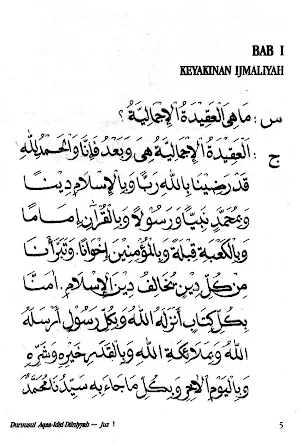 BAB I
KEYAKINAN IJMALIYAH
س : مَا هِيَ الْعَقِيدَةُ الْإِجْمَالِيَّةُ ؟
ج : الْعَقِيدَةُ الْإِجْمَالِيَّةُ هِيَ وَبَعْدُ فَإِنَّا وَالْحَمْدُ لِلّٰهِ
قَدْ رَضِيْنَا بِاللهِ رَبًّا وَبِالْإِسْلَامِ دِيْنًا
وَبِمُحَمَّدٍ نَبِيًّا وَرَسُوْلًا وَبِالْقُرْآنِ إِمَامًا
وَبِالْكَعْبَةِ قِبْلَةً وَبِالْمُؤْمِنِيْنَ إِخْوَانًا. وَتَبَرَّأْنَا
مِنْ كُلِّ دِيْنٍ يُخَالِفُ دِيْنَ الْإِسْلَامِ. اٰمَنَّا
بِكُلِّ كِتَابٍ أَنْزَلَهُ اللهُ وَبِكُلِّ رَسُوْلٍ أَرْسَلَهُ
اللهُ وَبِمَلَائِكَةِ اللهِ وَبِالْقَدَرِ خَيْرِهِ وَشَرِّهِ
وَبِالْيَوْمِ الْاٰخِرِ وَبِكُلِّ مَا جَاءَ بِهِ سَيِّدُنَا مُحَمَّدٌ
Durusul Aqaa-idid Diiniyyah — Juz 1
5